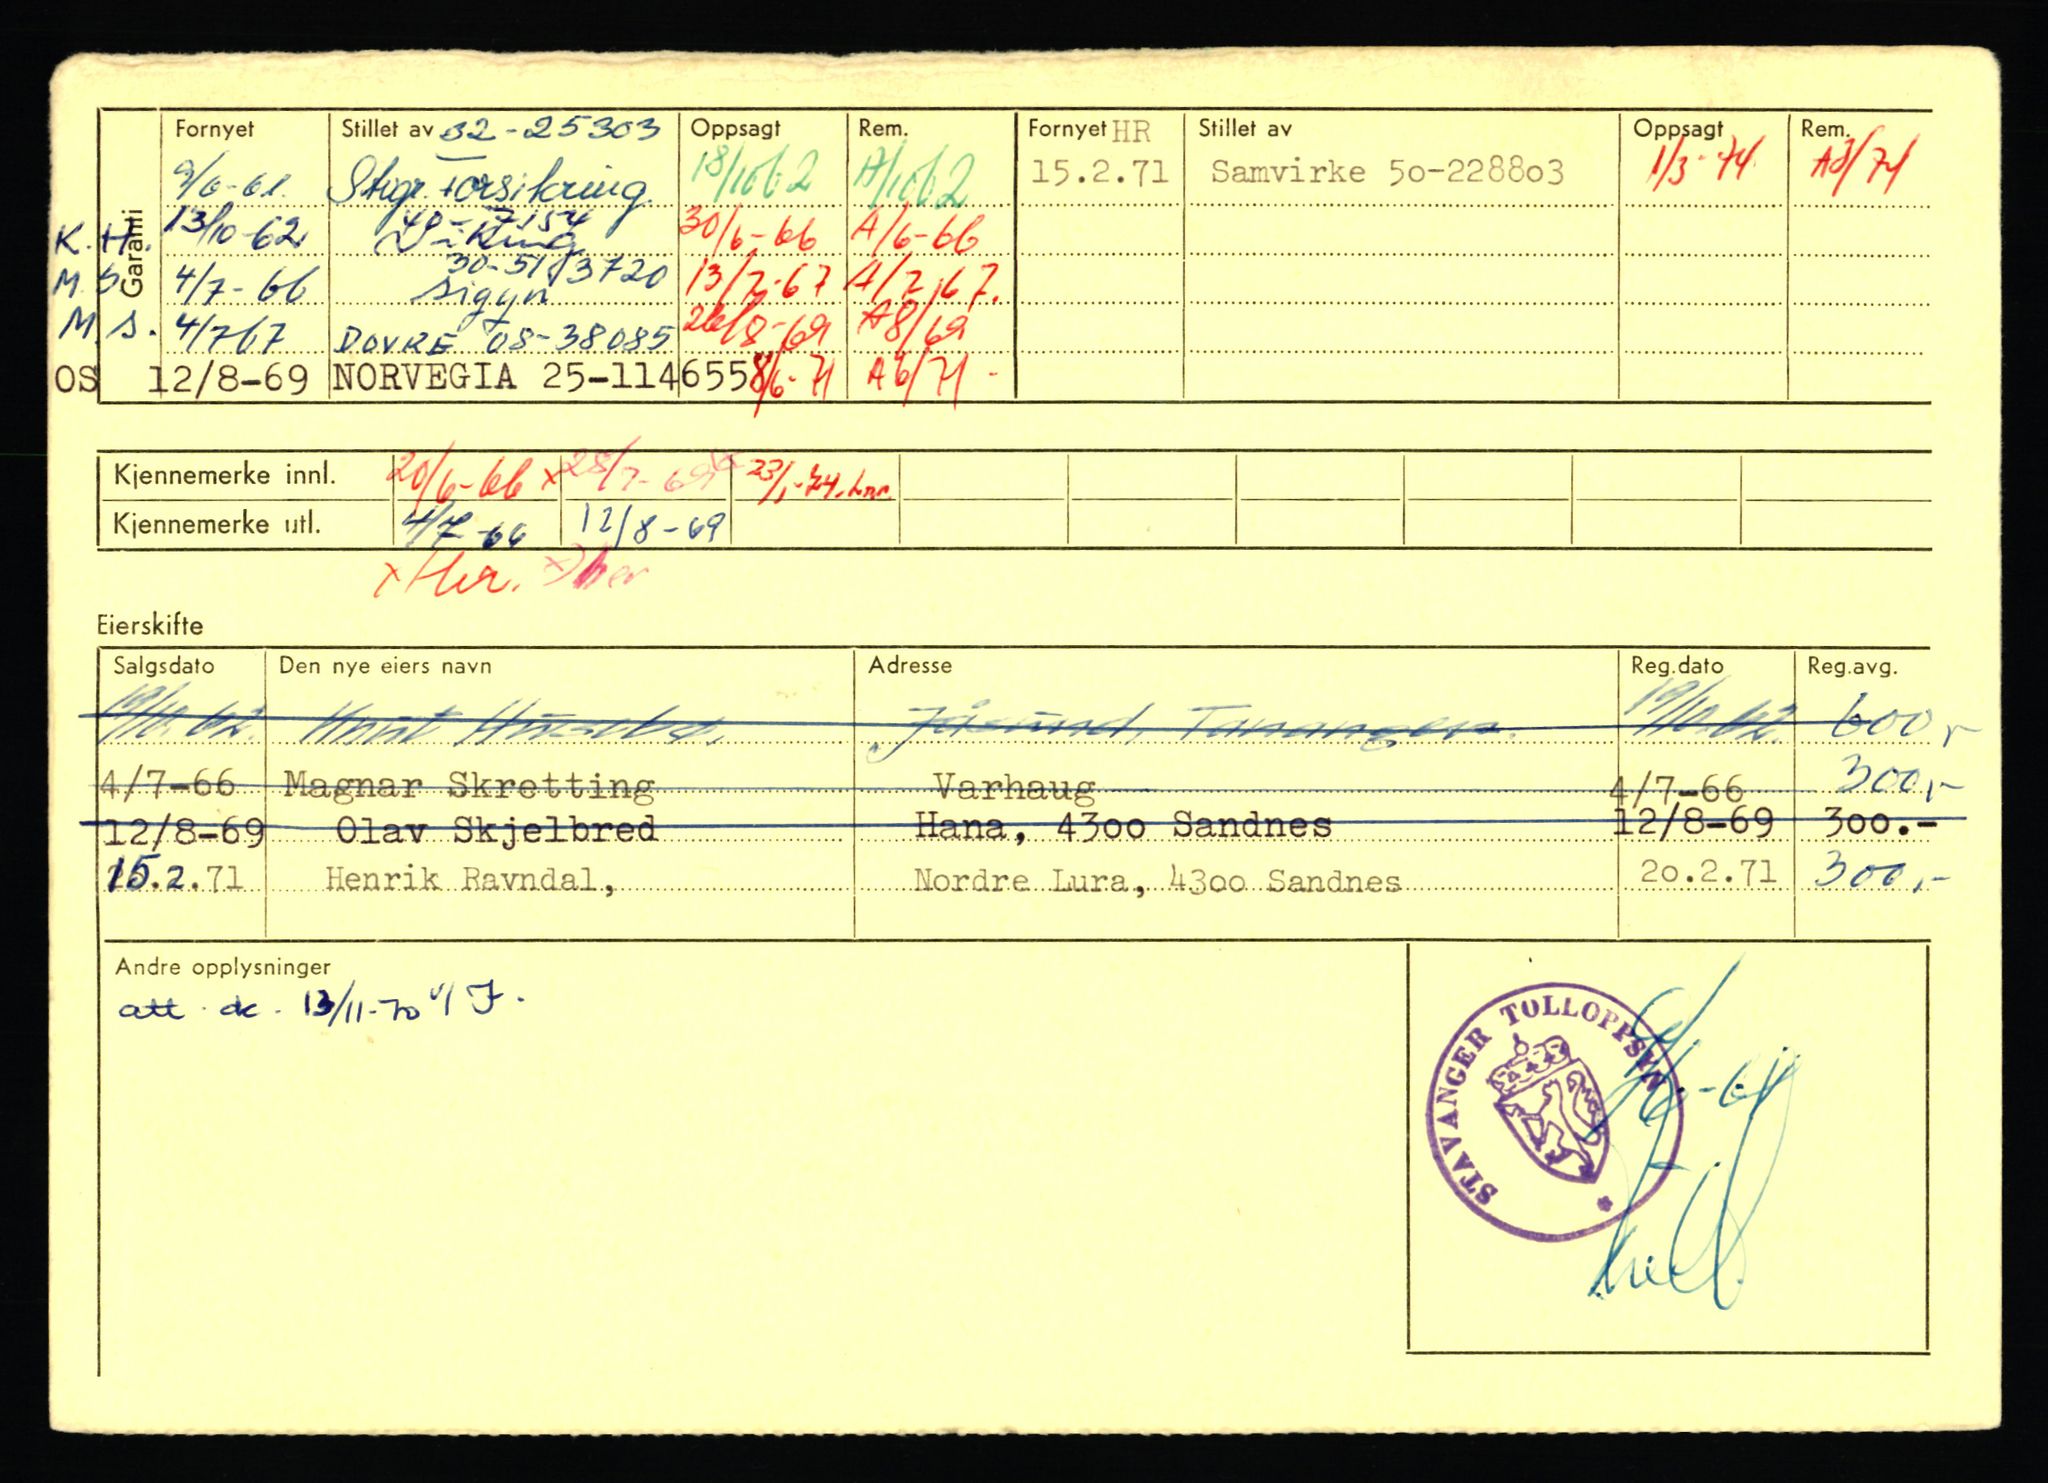 Garanti
Fornyet Stillet av 32-25303 Oppsagt Rem. Fornyet HR Stillet av Oppsagt Rem.
9/6-61. Stvgr. Forsikring 18/10 62 A/10 62 15.2.71 Samvirke 5o-2288o3 1/3-74 A3/74
K.H. 13/10-62 40-17154 Viking 30/6-66 A/6-66
M.S. 4/7-66 30-51 13720 Sigyn 13/7-67 A/7 67.
M.S. 4/7 67 DOVRE 08-38085 26/8-69 A8/69
OS 12/8-69 NORVEGIA 25-114655 8/6-71 A6/71-
Kjennemerke innl. 20/6-66 x 28/7-69 23/1-74.
Kjennemerke utl. 4/7-66 12/8-69
Eierskifte
Salgsdato Den nye eiers navn Adresse Reg.dato Reg.avg.
19/10.62. Knut Jåsund, Tananger. 19/10.62. 600,-
4/7-66 Magnar Skretting Varhaug 4/7-66 300,-
12/8-69 Olav Skjelbred Hana, 43oo Sandnes 12/8-69 3oo.-
15.2.71 Henrik Ravndal, Nordre Lura, 43oo Sandnes 2o.2.71 300,-
Andre opplysninger
att. dk. 13/11-70
STAVANGER TOLLOPPSYN